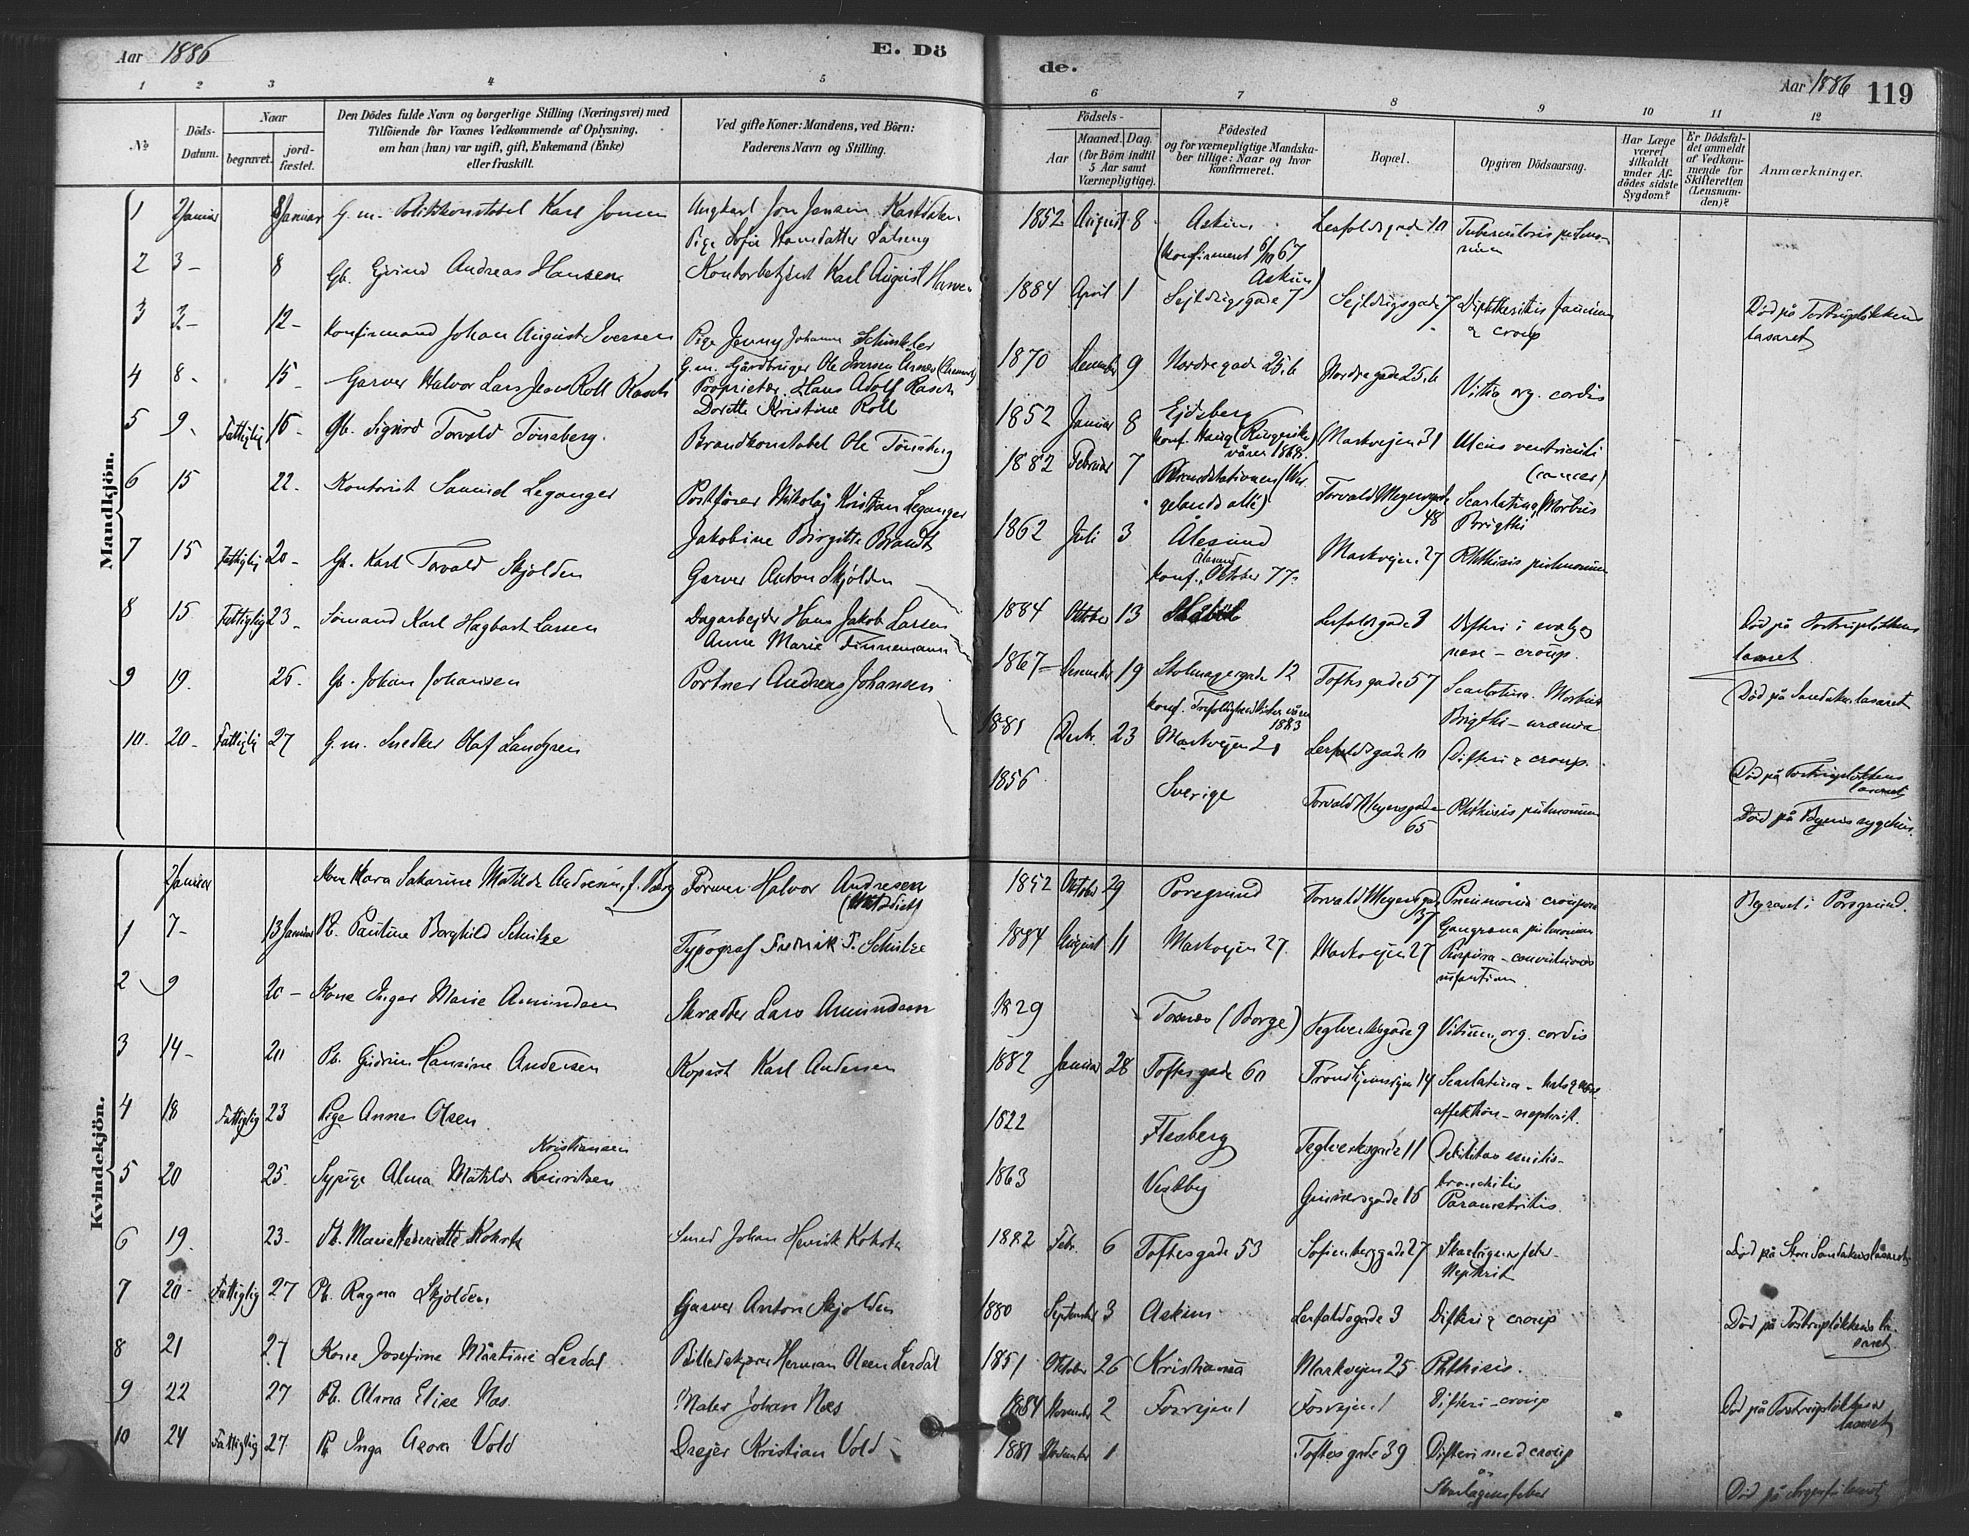 Aar 1886
E. Dö
de.
Aar 1886 119
1 2 3 4 5
6 7 8 9 10 11 12
No
Döds-
Datum.
Naar
begravet.
jord-
fæstet.
Den Dödes fulde Navn og borgerlige Stilling (Næringsvei) med
Tilföiende for Voxnes Vedkommende af Oplysning,
om han (hun) var ugift, gift, Enkemand (Enke)
eller fraskilt.
Ved gifte Koner: Mandens, ved Börn:
Faderens Navn og Stilling.
Födsels-
Aar
Maaned. Dag.
(for Börn indtil
5 Aar samt
Værnepligtige).
Födested
og for værnepligtige Mandska-
ber tillige: Naar og hvor
konfirmeret.
Bopæl.
Opgiven Dödsaarsag.
Har Læge
været
tilkaldt
under Af-
dödes sidste
Sygdom?
Er Dödsfal-
det anmeldt
af Vedkom-
mende for
Skifteretten
(Lensman-
den)?
Anmærkninger.
Mandkjön.
1 2 Januar 8 Januar G. m. Politikonstabel Karl Jonsen
Jon Jensen
Pige Sofie
1852 August 8 Askim
(konfirmeret 6/10 67
Askim)
Lerfaldsgade 10 Tuberculosis pulmo-
num
2 3 – 8 Gb. Ejvind Andreas Hansen Kontorbetjent Karl August Hansen
1884 April 1 Sejldugsgade 7 Sejldugsgade 7 Diphtheritis faucium
& croup
Död på Tostrupløkkens
lasaret
3 3 – 12 – Konfirmand Johan August Iversen Pige Jenny Johanne Schinkler
G. m. Gårdbruger Ole Iversen
1870 December 9 Nordregade 25,b Nordregade 25,b Vitia org. cordis
4 8 – 15 – Garver Halvor Lars Jean Roll Rasch Proprietær Hans Adolf Rasch
Dorette Kristine Roll
1852 Januar 8 Ejdsberg
konf. Haug (Ringerike)
våren 1868.
Markvejen 31 Ulcus ventriculi
(cancer)
5 9 – Fattiglig 16 – Gb. Sigurd Torvald Tönsberg. Brandkonstabel Ole Tönsberg
1882 Februar 7 Brandstationen (Wer-
gelands allé)
Torvald Meyersgade
48
Scarlatina, Morbus
Brigthi
6 15 22 – Kontorist Samuel Leganger Postfører Nikolaj Kristian Leganger
Jakobine Birgitte Brandt
1862 Juli 3 Ålesund
Ålesund
konf. Oktober 77.
Markvejen 27 Phthisis pulmonum
7 15 Fattiglig 20 – Gb. Karl Torvald Skjolden Garver Anton Skjolden
1884 Oktober 13 Lerfaldsgade 3 Difteri i svalg og
næse – croup.
Död på Tostrupløkkens
lasaret
8 15 Fattiglig 23 – Sömand Karl Hagbart Larsen Dagarbejder Hans Jakob Larsen
Anne Marie Finnemann
1867 – December 19 Stolmagergade 12
konf. Trefoldighedskirken våren
1883
Toftesgade 57 Scarlatina. Morbus
Brigthi – uræmia
Död på Sandakerlasaret
9 19. 26 – Gb. Johan Johansen Portner Andreas Johansen
1881 Decbr. 23 Markvejen 21 Lerfaldsgade 10 Difteri & croup.
Död på Tostrupløkkens
lasaret
10. 20 – Fattiglig 27 G. m. Snedker Olaf Landgren
1856 Sverige Torvald Meyersgade
65
Phthisis pulmonum
Död på Byens sygehus.
Kvindekjön.
2 Januar Kone Kara Sakarine Matilde Andresen, f. Borg Former Halvor Andresen
(Metodist)
1852 Oktober 29 Porsgrund Torvald Meyersgade
37
Pneumonia crouposa
Gangræna pulmonum
Begravet i Porsgrund.
1 7 – 13 Januar Pb. Pauline Borghild Schulze Typograf Fredrik F. Schulze
1884 August 11 Markvejen 27. Markvejen 27 Purpura – convulsiones
infantium.
2 9 20 – Kone Inger Marie Amundsen Skrædder Lars Amundsen
1829 Torsnes (Borge) Teglverksgade 9 Vitium org. cordis
3 14 – 20 Pb. Gudrun Hansine Andersen Kopist Karl Andersen
1882 Januar 28 Toftesgade 60 Trondhjemsvejen 14 Scarlatina –
affektion – nephrit.
4 18 Fattiglig 23 Pige Anne Olsen
1822 Flesberg Teglverksgade 11 Debilitas senilis –
bronchitis
5 20 25 – Sypige Alma Matilde Lauritsen
Kristiansen
1863 Vestby 15 Parametritis.
6 19. 23 – Pb. Marie Henriette Kohrtz Smed Johan Henrik Kohrtz
1882 Febr. 6 Toftesgade 53 Sofienberggade 27 Skarlagensfeber –
Nephrit
Död på Store Sandakerlasaret
7 20 – Fattiglig 27 Pb. Ragna Skjolden Garver Anton Skjolden
1880 September 3 Askim Lerfaldsgade 3 Difteri & croup
Död på Tostrupløkkens la-
saret
8 21 27 Kone Josefine Martine Lerdal Billedskjærer Herman Olsen Lerdal
1851 Oktober 26 Kristiania Markvejen 25 Phthisis.
9 22 27 Pb. Alma Elise Næs Maler Johan Næs
1884 November 2 Fosvejen 1 Fosvejen 1 Difteri – croup
Död på Tostrupløkkens
lasaret
10 24 Fattiglig 27 Pb Inga Aora Vold Drejer Kristian Vold –
1881 November 1 Toftesgade 39 Difteri med croup
&
Skarlagensfeber
Död på